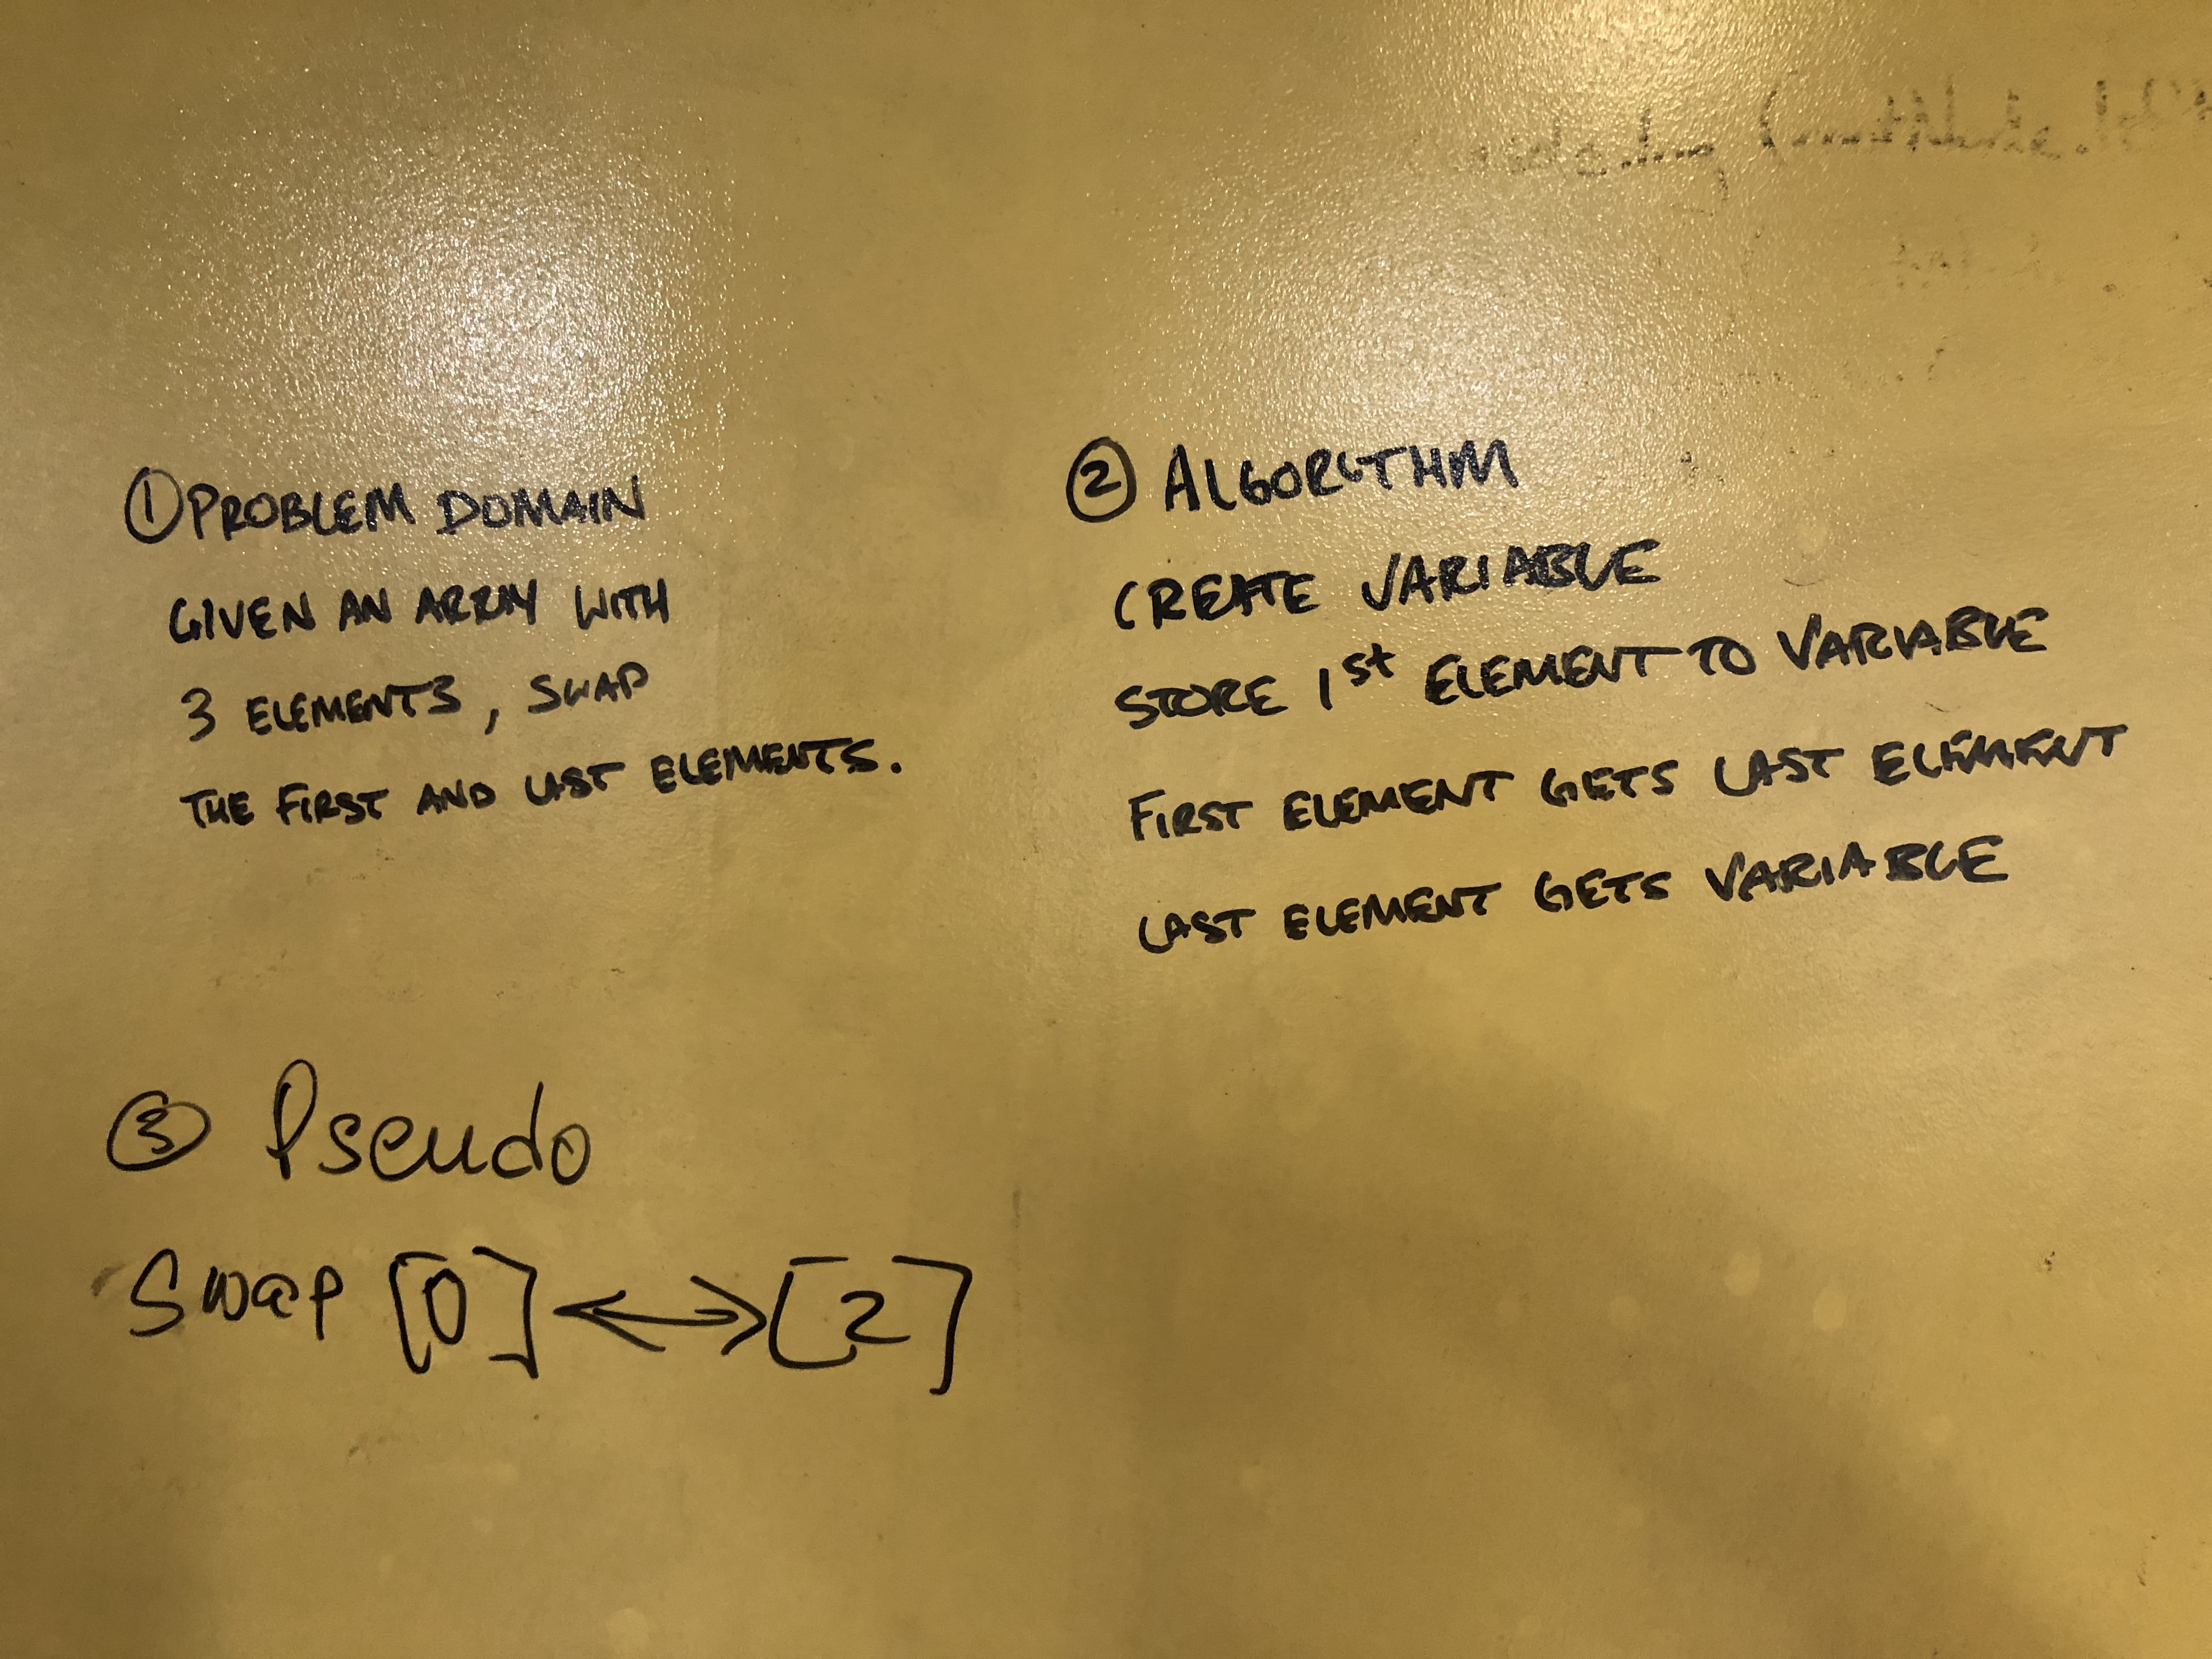 ① PROBLEM DOMAIN
GIVEN AN ARRAY WITH
3 ELEMENTS, SWAP
THE FIRST AND LAST ELEMENTS.
② ALGORITHM
CREATE VARIABLE
STORE 1st ELEMENT TO VARIABLE
FIRST ELEMENT GETS LAST ELEMENT
LAST ELEMENT GETS VARIABLE
③ Pseudo
Swap [0] <-> [2]